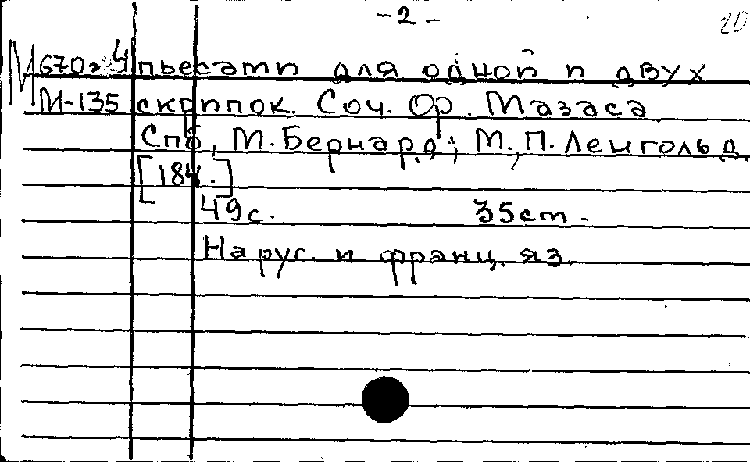 - 2 -
20
М 670г4 пьесами для одной и двух
М-135 скрипок. Соч. Ор. Мазаса
Спб, М. Бернард; М., П. Ленгольд
[184.]
49 с. 35 см.
На рус. и франц. яз.